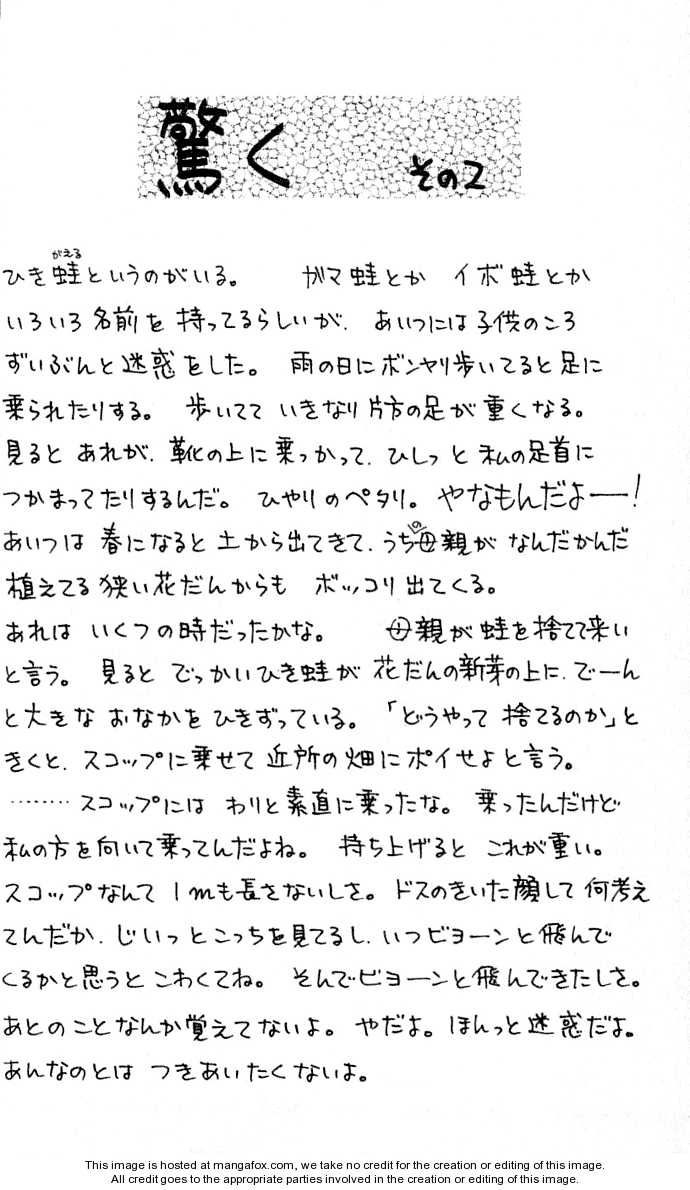 驚く その2
ひき蛙というのがいる。 ガマ蛙とか イボ蛙とか
がえる
いろいろ名前を持ってるらしいが、あいつには子供のころ
ずいぶんと迷惑をした。 雨の日にボンヤリ歩いてると足に
乗られたりする。 歩いてて いきなり片方の足が重くなる。
見ると あれが、靴の上に乗っかって、ひしっと私の足首に
つかまってたりするんだ。 ひやりのペタリ。 やなもんだよー!
あいつは 春になると 土から出てきて、うちの母親が なんだかんだ
植えてる狭い花だんからも ボッコリ出てくる。
あれは いくつの時だったかな。 母親が 蛙を捨てて来い
と言う。 見ると でっかいひき蛙が 花だんの新芽の上に、でーん
と大きな おなかを ひきずっている。 「どうやって 捨てるのか」と
きくと、スコップに乗せて 近所の畑にポイせよと言う。
‥‥‥‥スコップには わりと素直に乗ったな。 乗ったんだけど
私の方を向いて乗ってんだよね。 持ち上げると これが重い。
スコップなんて 1mも長さないしさ。 ドスのきいた顔して 何考え
てんだか、じいっとこっちを見てるし、いつビヨーンと飛んで
くるかと思うと こわくてね。 そんでビヨーンと飛んできたしさ。
あとのことなんか覚えてないよ。 やだよ。 ほんっと迷惑だよ。
あんなのとは つきあいたくないよ。
This image is hosted at mangafox.com, we take no credit for the creation or editing of this image.
All credit goes to the appropriate parties involved in the creation or editing of this image.